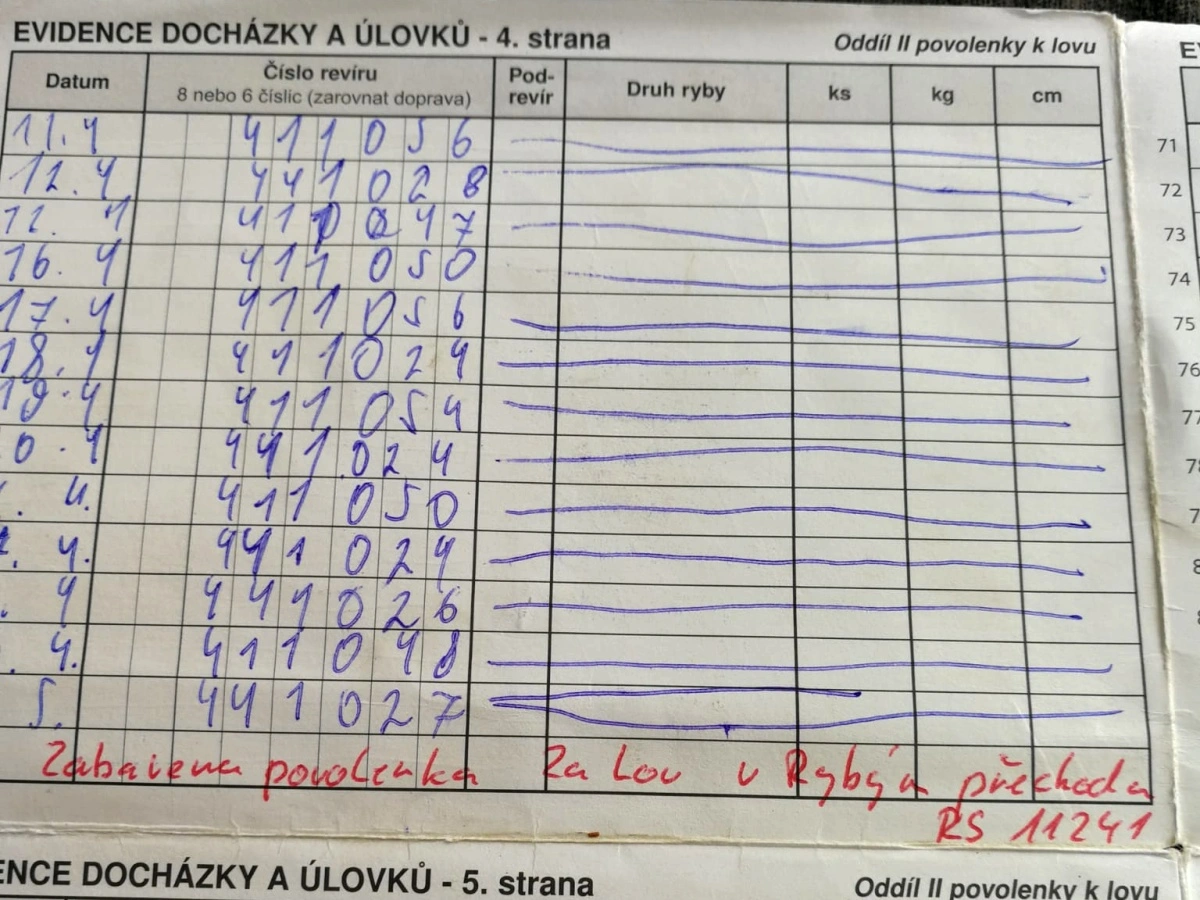 EVIDENCE DOCHÁZKY A ÚLOVKŮ - 4. strana Oddíl II povolenky k lovu
Datum Číslo revíru 8 nebo 6 číslic (zarovnat doprava) Pod-revír Druh ryby ks kg cm
11.4 411056 71
12.4 441028 72
12. 4 411047 73
16. 4 411050 74
17.4 411056 75
18.4 411024 76
19.4 411054 77
0.4 441024 78
. 4. 411050 7
. 4. 441024 8
. 4 441026
. 4. 411048
5. 441027
Zabavena povolenka za Lov v Rybým přechodu
RS 11241
ENCE DOCHÁZKY A ÚLOVKŮ - 5. strana Oddíl II povolenky k lovu